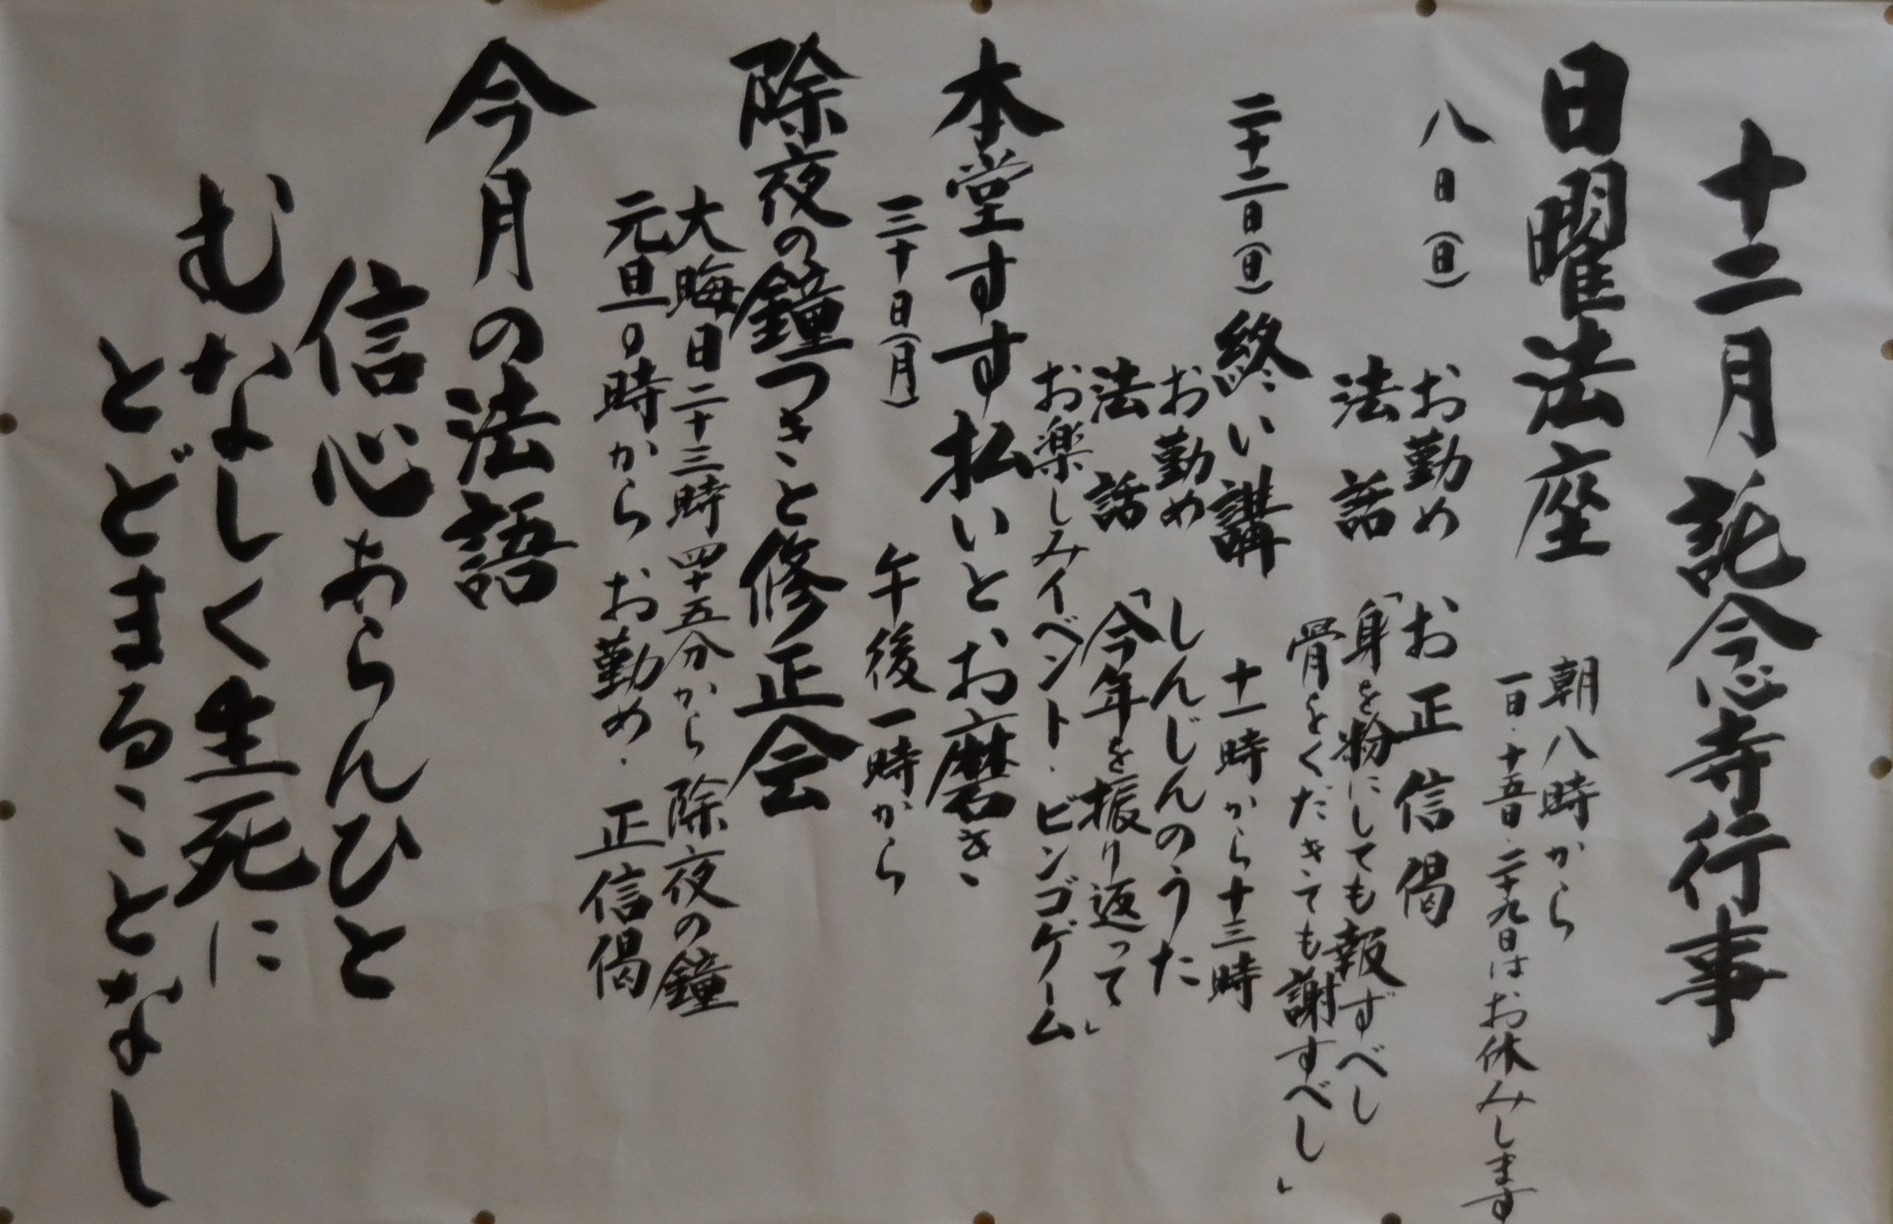 十二月 託念寺行事
日曜法座 朝八時から
一日・十五日・二十九日はお休みします
八日(日) お勤め お正信偈
法話 「身を粉にしても報ずべし
骨をくだきても謝すべし」
二十二日(日) 終い講 十一時から十三時
お勤め しんじんのうた
法話 「今年を振り返って」
お楽しみイベント・ビンゴゲーム
本堂すす払いとお磨き
三十日(月) 午後一時から
除夜の鐘つきと修正会
大晦日二十三時四十五分から 除夜の鐘
元旦0時から お勤め・正信偈
今月の法語
信心あらんひと
むなしく生死に
とどまることなし